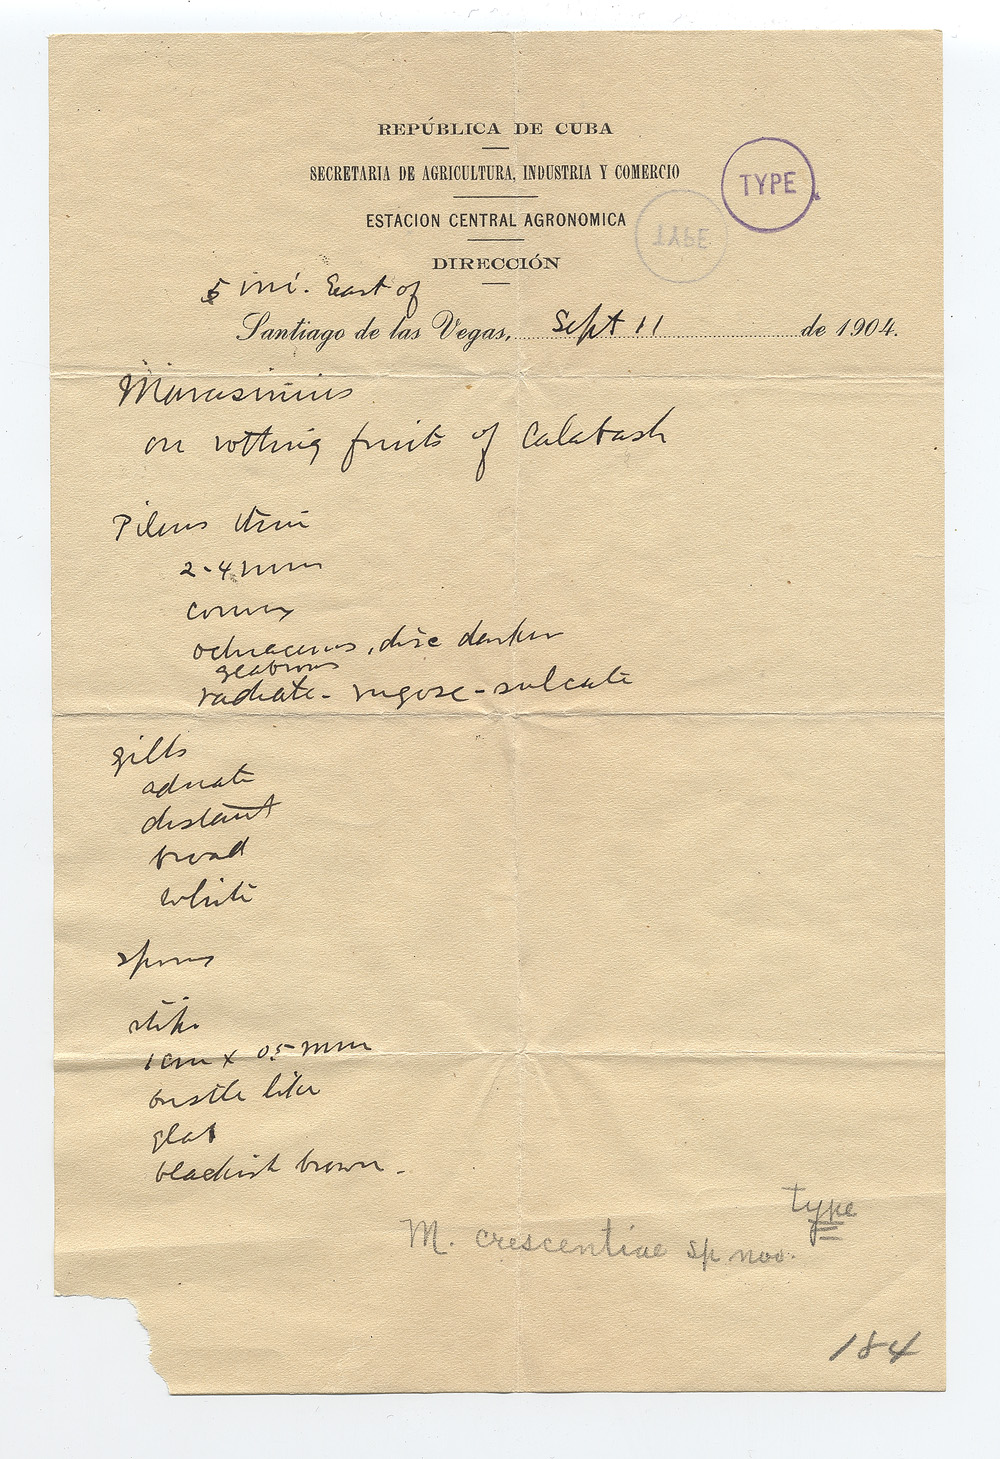 REPÚBLICA DE CUBA
SECRETARIA DE AGRICULTURA, INDUSTRIA Y COMERCIO
TYPE
ESTACION CENTRAL AGRONOMICA
TYPE
DIRECCIÓN
5 mi. East of
Santiago de las Vegas, Sept 11 de 1904.
Marasimius
on rotting fruits of Calabash
Pileus thin
2-4 mm
convex
ochraceous, disc darker
glabrous
radiate-rugose-sulcate
gills
adnate
distant
broad
white
spores
stipe
1cm x 05 mm
bristle like
glab
blackish brown.
type
M. crescentiae sp nov.
184